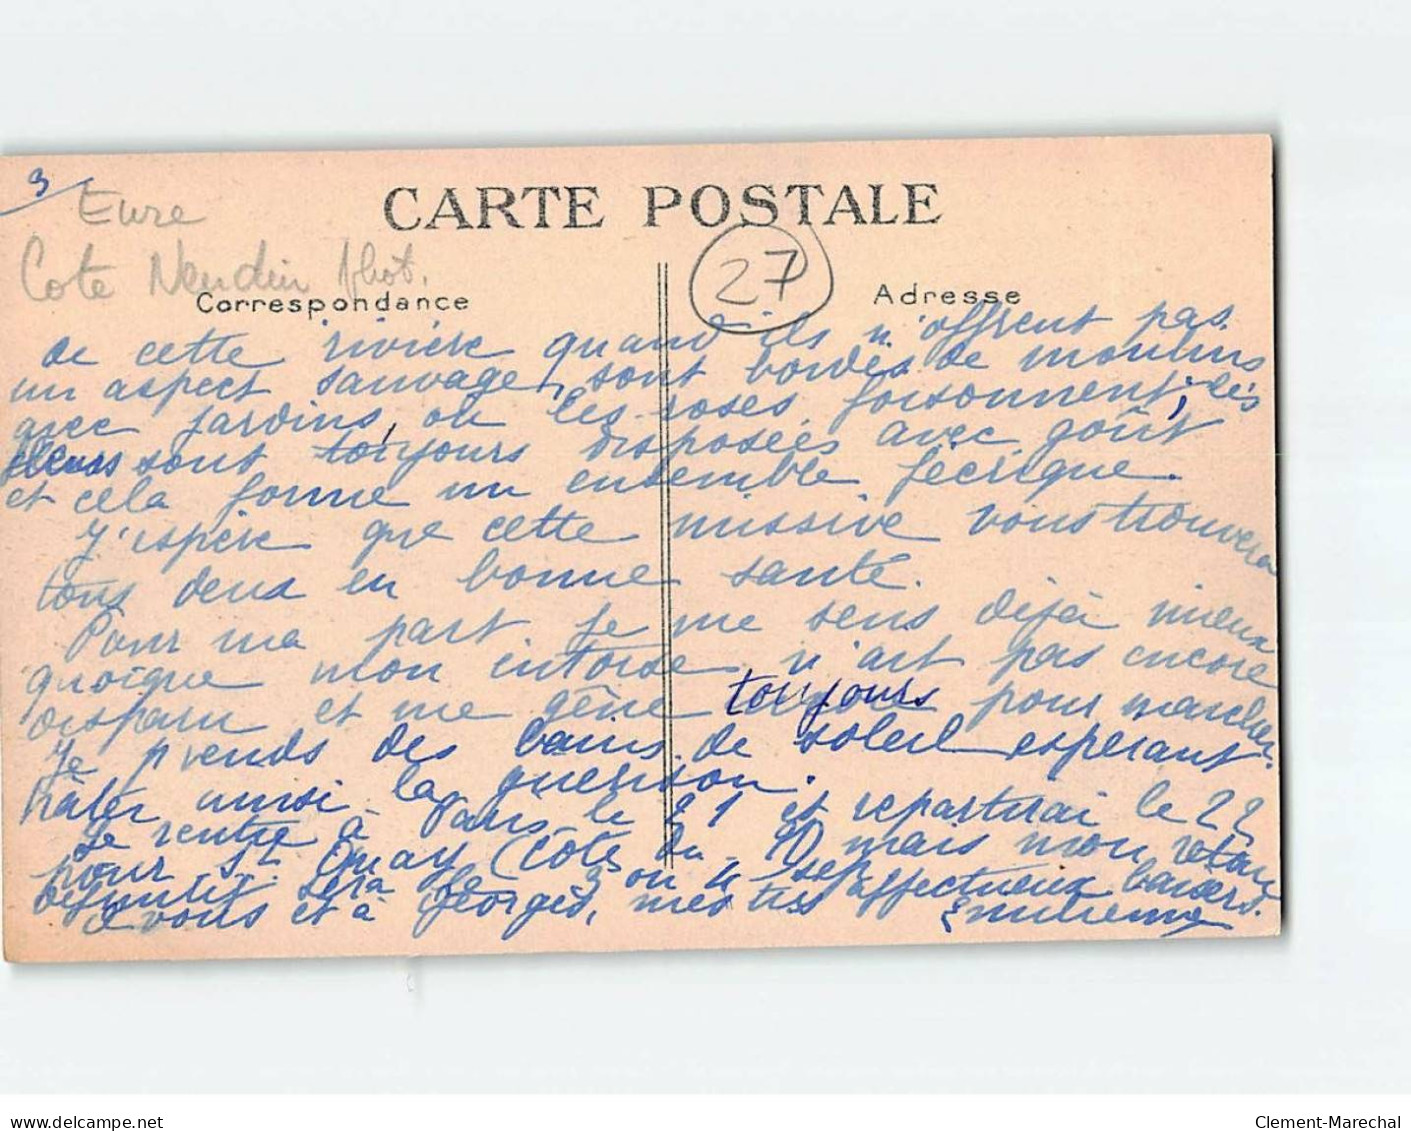 3
Eure
Cote Neudin Phot.
CARTE POSTALE
27
Correspondance
Adresse
de cette rivière quand ils n'offrent pas
un aspect sauvage, sont bordés de moulins
avec jardins, où les roses foisonnent; les
fleurs sont toujours disposées avec goût
et cela forme un ensemble féerique.
J'espère que cette missive vous trouvera
tous deux en bonne santé.
Pour ma part je me sens déjà mieux
quoique mon entorse n'ait pas encore
disparu et me gêne toujours pour marcher.
Je prends des bains de soleil espérant
hâter ainsi la guérison.
Je rentre à Paris le 21 et repartirai le 22
pour St Quay (Côtes du N) mais mon retour
définitif sera le 3 ou 4 sep
à vous et à Georges, mes très affectueux baisers.
Emilienne
Clement-Marechal